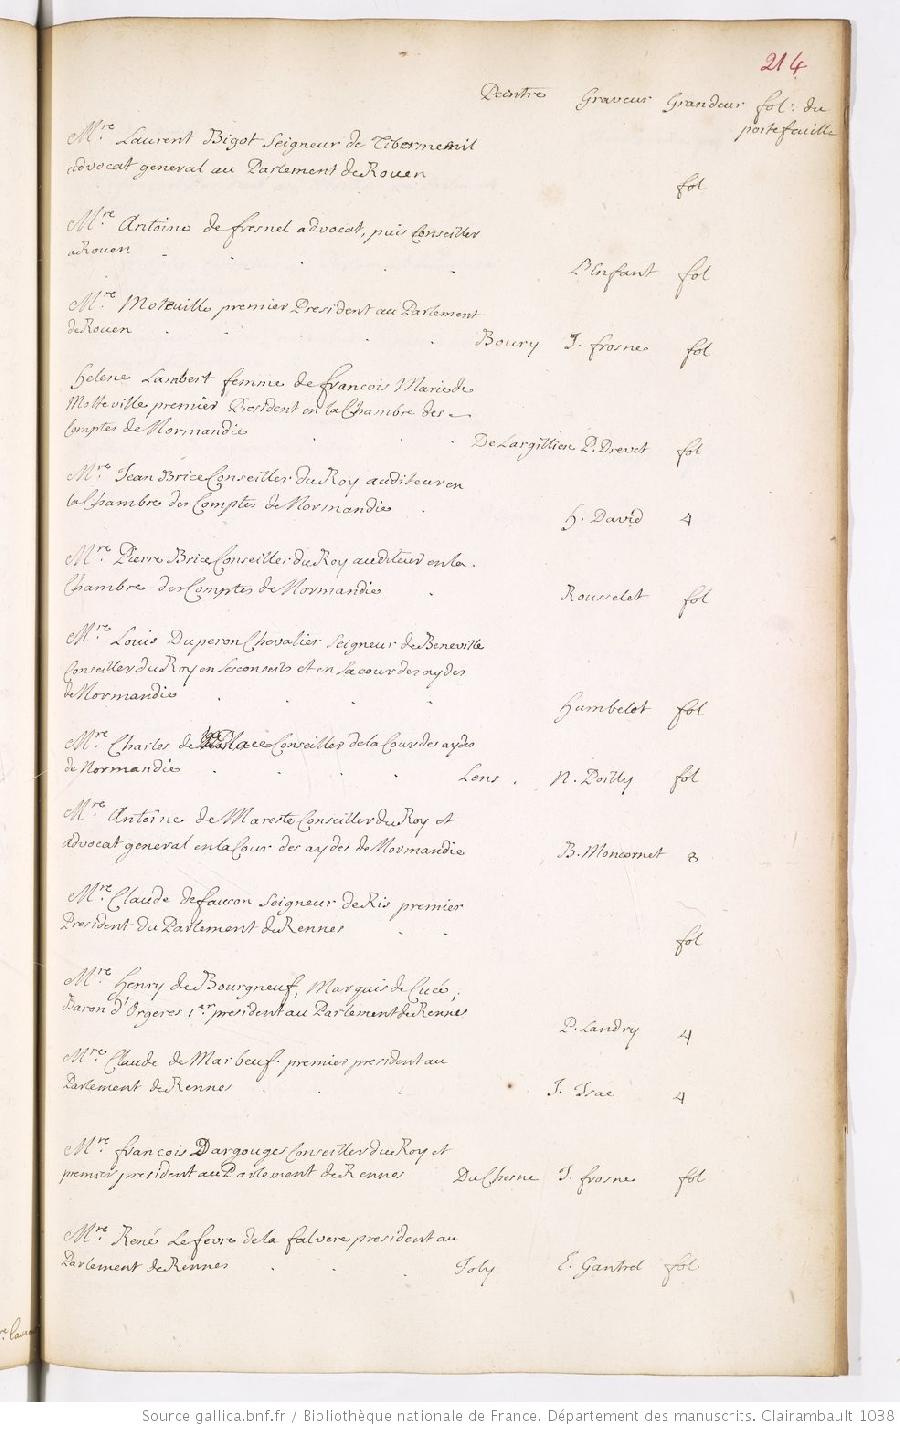 214
Peintre Graveur Grandeur fol: du
portefeuille
Mre. Laurent Bigot Seigneur de Tibermenil
advocat general au Parlement de Rouen fol
Mre. Antoine de fresnel advocat, puis Conseiller
a Rouen L'Enfant fol
Mre. Moteville premier President au Parlement
de Rouen Boury J. frosne fol
Helene Lambert femme de françois Marie de
Motteville premier President en la Chambre des
Comptes de Normandie De Largillien P. Drevet fol
Mre. Jean Brice Conseiller du Roy auditeur en
la Chambre des Comptes de Normandie H. David 4
Mre. Pierre Brice Conseiller du Roy auditeur en la
Chambre des Comptes de Normandie Rousselet fol
Mre. Louis Duperon Chevalier Seigneur de Beneville
Conseiller du Roy en ses conseils et en sa cour des aydes
de Normandie Humbelot fol
Mre. Charles de Conseiller de la Cour des aydes
de Normandie Lens. N. Poilly fol
Mre. Antoine de Mareste Conseiller du Roy et
advocat general en la Cour des aydes de Normandie B. Moncornet 8
Mre. Claude de faucon Seigneur de Ris premier
President du Parlement de Rennes fol
Mre. Henry de Bourgneuf, Marquis de Cucé,
Baron d'Orgeres 1er. president au Parlement de Rennes P. Landry 4
Mre. Claude de Marbeuf premier president au
Parlement de Rennes J. Isac 4
Mre. françois Dargouges Conseiller du Roy et
premier president au Parlement de Rennes Du Chesne J. frosne fol
Mre. René Le fevre de la falvere president au
Parlement de Rennes Joly E. Gantrel fol
Source gallica.bnf.fr / Bibliothèque nationale de France. Département des manuscrits. Clairambault 1038